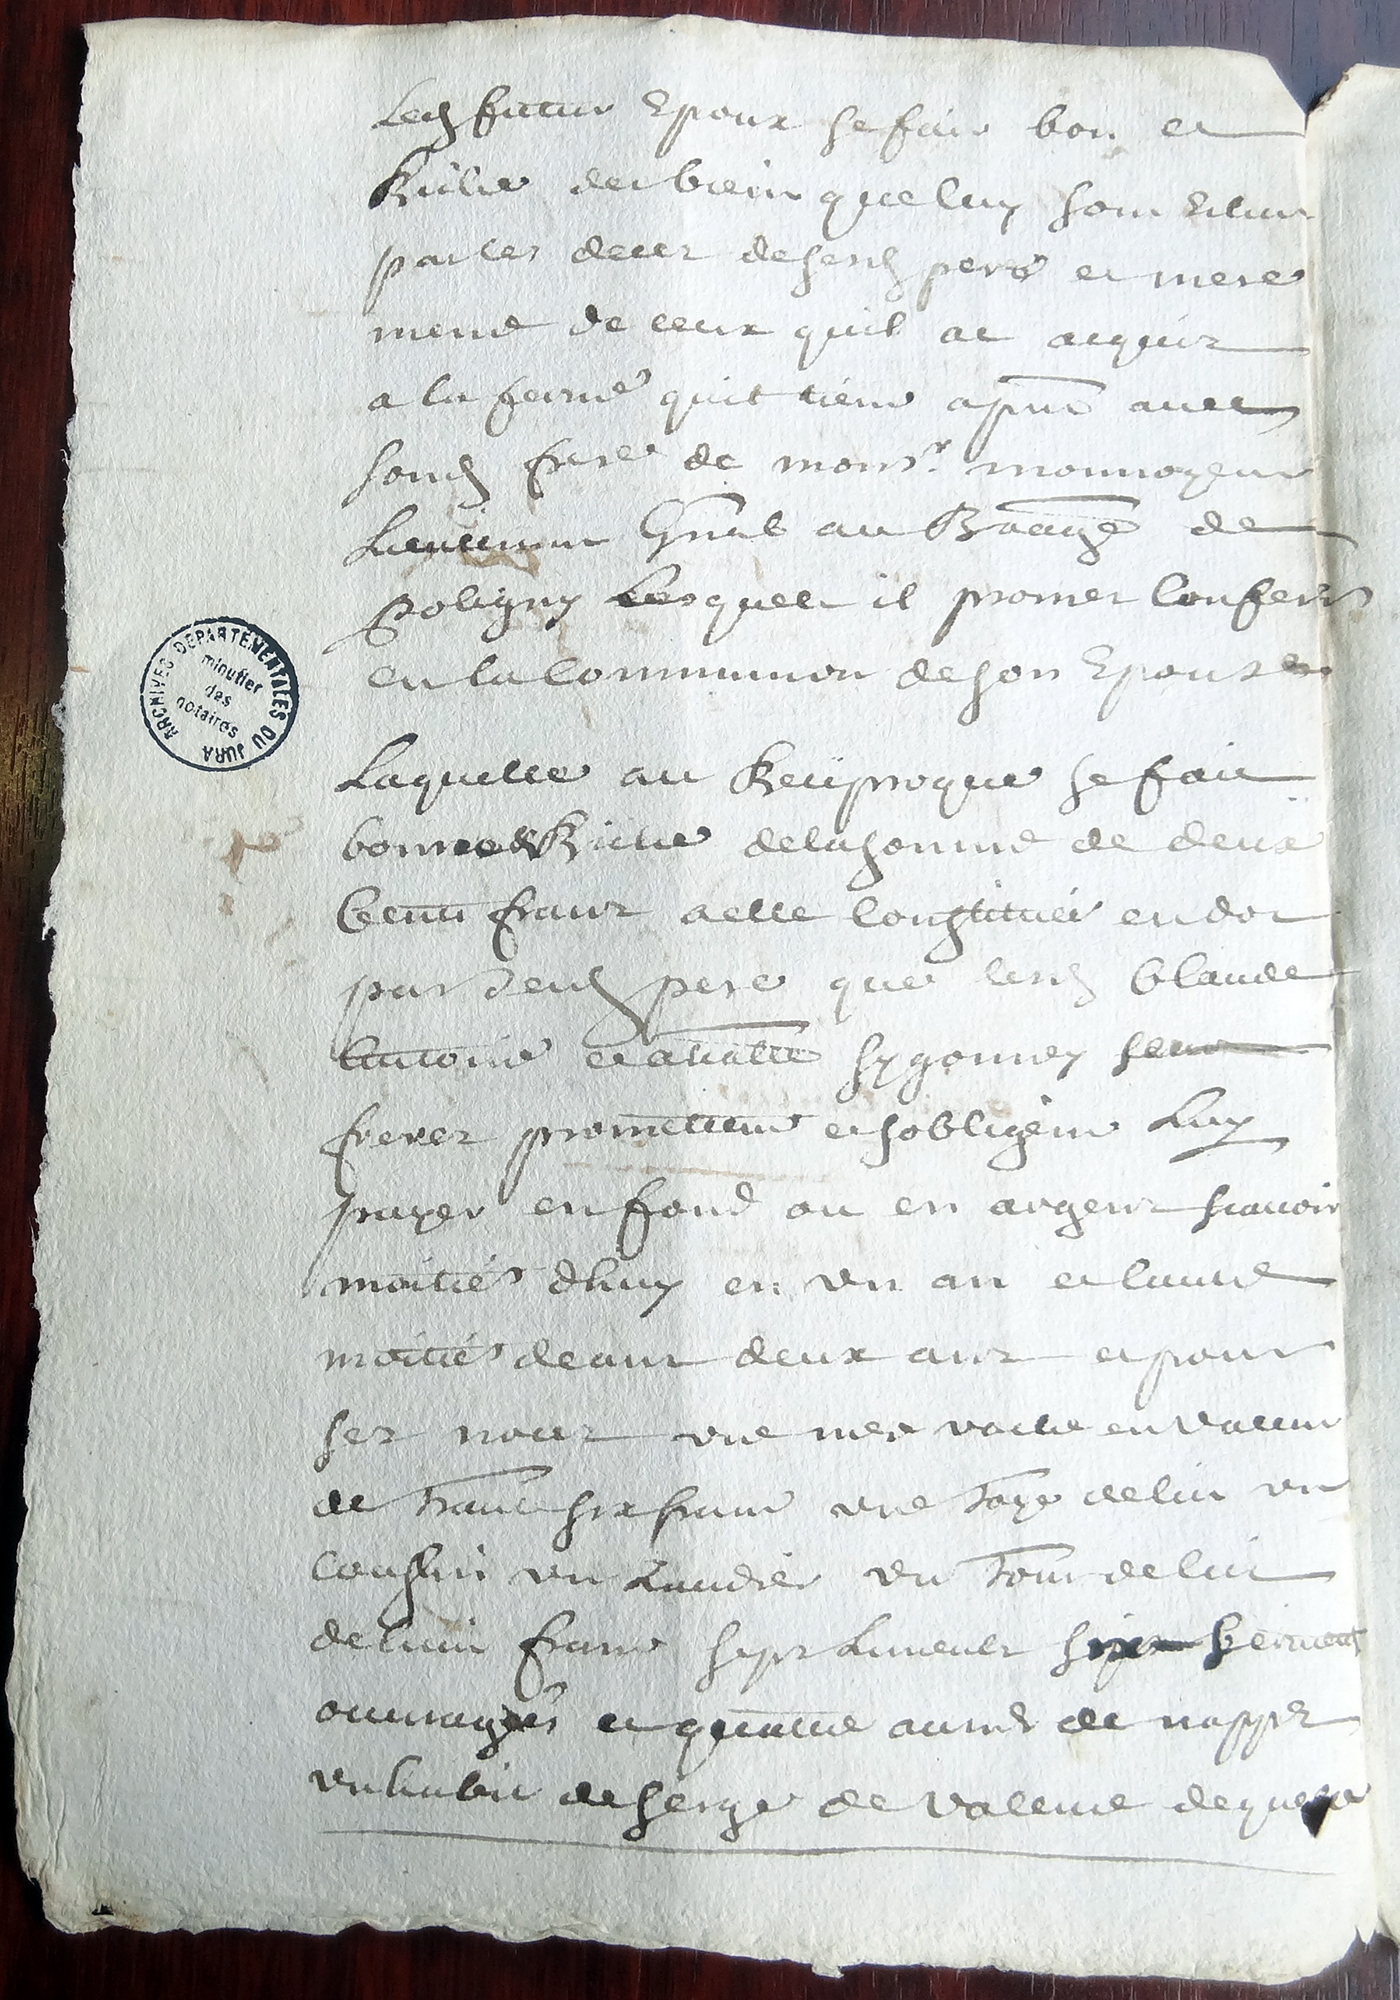 Led futur Epoux se fait bon et
Riche des biens que luy sont Echus
par les deces de sesd pere et mere
meme de ceux quil at acquis
a la ferme quil tient apnt avec
sond frere de monsr. monnoyeur
Lieutenant Gnal au Baage de
poligny Lesquels il promet Conferer
en la Communion de son Epouse
Laquelle au Reciproque se fait
bonne & Riche de la somme de deux
Cents francs a elle Constituée en dot
par sond pere que lesd Claude
Antoine et Sygonney ses
freres promettent et sobligent Luy
payer en fond ou en argent scavoir
moitié dhuy en un an et lautre
moitié dans deux ans et pour
ses nocts une mere vache en valeur
de Trante six francs une Taye de lit un
Coussin un Landier un Tour de lit
de huit francs sept Linceuls serviettes
ouuragées et quattre aunes de nappes
un habit de serge de valence de quelle
ARCHIVES DEPARTEMENTALES DU JURA
minutier
des
notaires